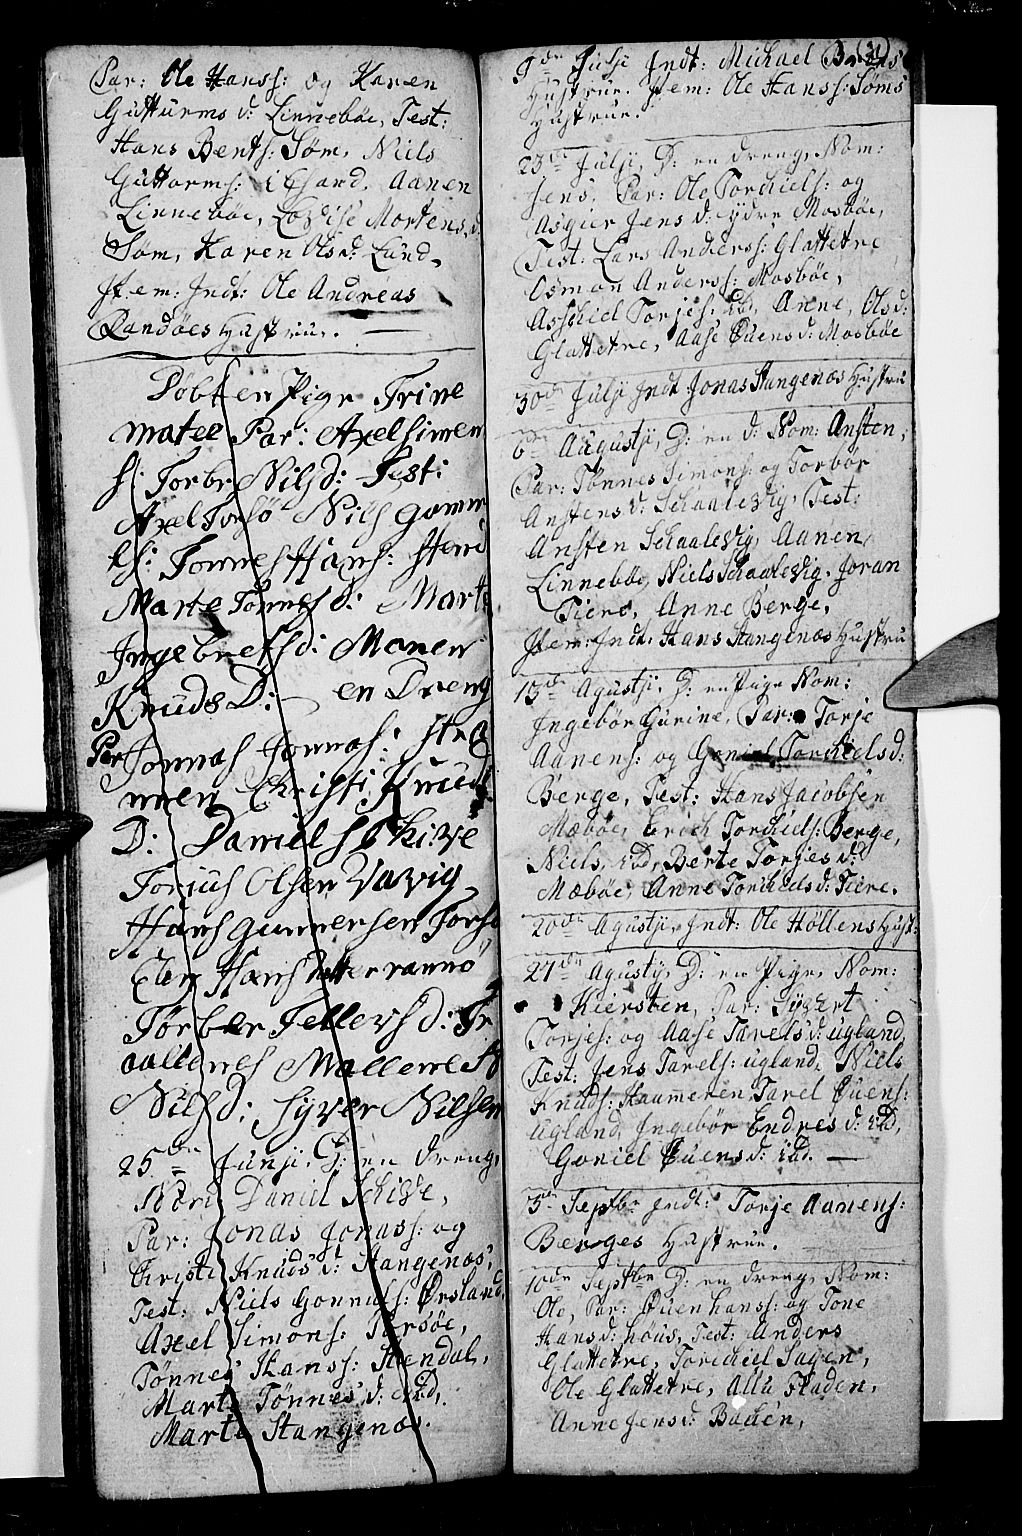 Par: Ole Hanss: og Karen
Gutturms d: Linnebøe, Test:
Hans Bents: Søm, Niels
Guttorms: ibd, Aanen
Linnebøe, Lovise Mortens d:
Søm, Karen Ols d: Lund.
It:em: Indt: Ole Andreas
Randøes Hustrue.
Døbt en Pige Trine
matee Par: Axel simen
s: Torbr Nils d: Test:
Axel Torsø Nils Gomm
es: Tonnes Hans: Hend
Marte Tonnes d: Mart
Ingebretsd: Manen
Knuds D: en Dreng
Par Jonnas Jonnas: Sta
nnen Christi Knuds
D: Daniel Schive
Torjus Olsen Vavig
Hans Gunnersen Torsø
Elen Hans
Tørber Tellevs d: Tr
aallenes Mallene St
Nils d: Syver Nilsen
25de Junji, D: en dreng,
Nom: Daniel Schive,
Par: Jonas Jonass: og
Christi Knuds d: Stangenæs,
Test: Niels Gonnulfs: Ørsland,
Axel Simons: Torsøe,
Tønnes Hanss: Stendal,
Marte Tønnes d: ibd,
Marte Stangenæs.
9de Julji Indt: Michael
Hustrue. It:em: Ole Hanss: Søms
Hustrue.
23de Julji, D: en dreng, Nom:
Jens, Par: Ole Torchiels: og
Asgier Jens d: ydre Mosbøe,
Test: Lars Anderss: Glattetre
Osmon Anderss: Mosbøe,
Asschiel Torjes: ibd, Anne, Ols d:
Glattetre, Aase Øuens d: Mosbøe
30de Julji Indt: Jonas Stangenæs Hustru
6te Augustji, D: en d: Nom: Ansten,
Par: Tønnes Simons: og Torbør
Anstens d: Schaalevig, Test:
Ansten Schaalevig, Aanen
Linnebøe, Niels Schaalevig, Joran
Tiere, Anne Berge,
It:em: Indt: Hans Stangenæs Hustru
13de Agustji, D: en Pige Nom:
Ingebør Gurine, Par: Torje
Aanens: og Goniel Torchiels d:
Berge, Test: Hans Jacobsen
Mæbøe, Erich Torchiels: Berge,
Niels, ibd, Berte Torjes d:
Mæbøe, Anne Torchiels d: Tiere.
20de Agustji, Indt: Ole Høllens Hust:
27de Agustij, D: en Pige, Nom:
Kiersten, Par: Syvert
Torjes: og Aase Tarels d: ugland,
Test: Jens Tarels: ugland, Niels
Knuds: Haumeren, Tarel Øuens:
ugland, Ingebør Endres d: ibd,
Goniel Øuens d: ibd.
3de Septbr Indt: Torje Aanens:
Berges Hustrue.
10de Septbr D: en dreng, Nom:
Ole, Par: Øuen hanss: og Tone
Hans d: høus, Test: Anders
Glattetre, Torchiel Sagen,
Ole Glattetre, Allu Fladen,
Anne Jens d: Bachen,